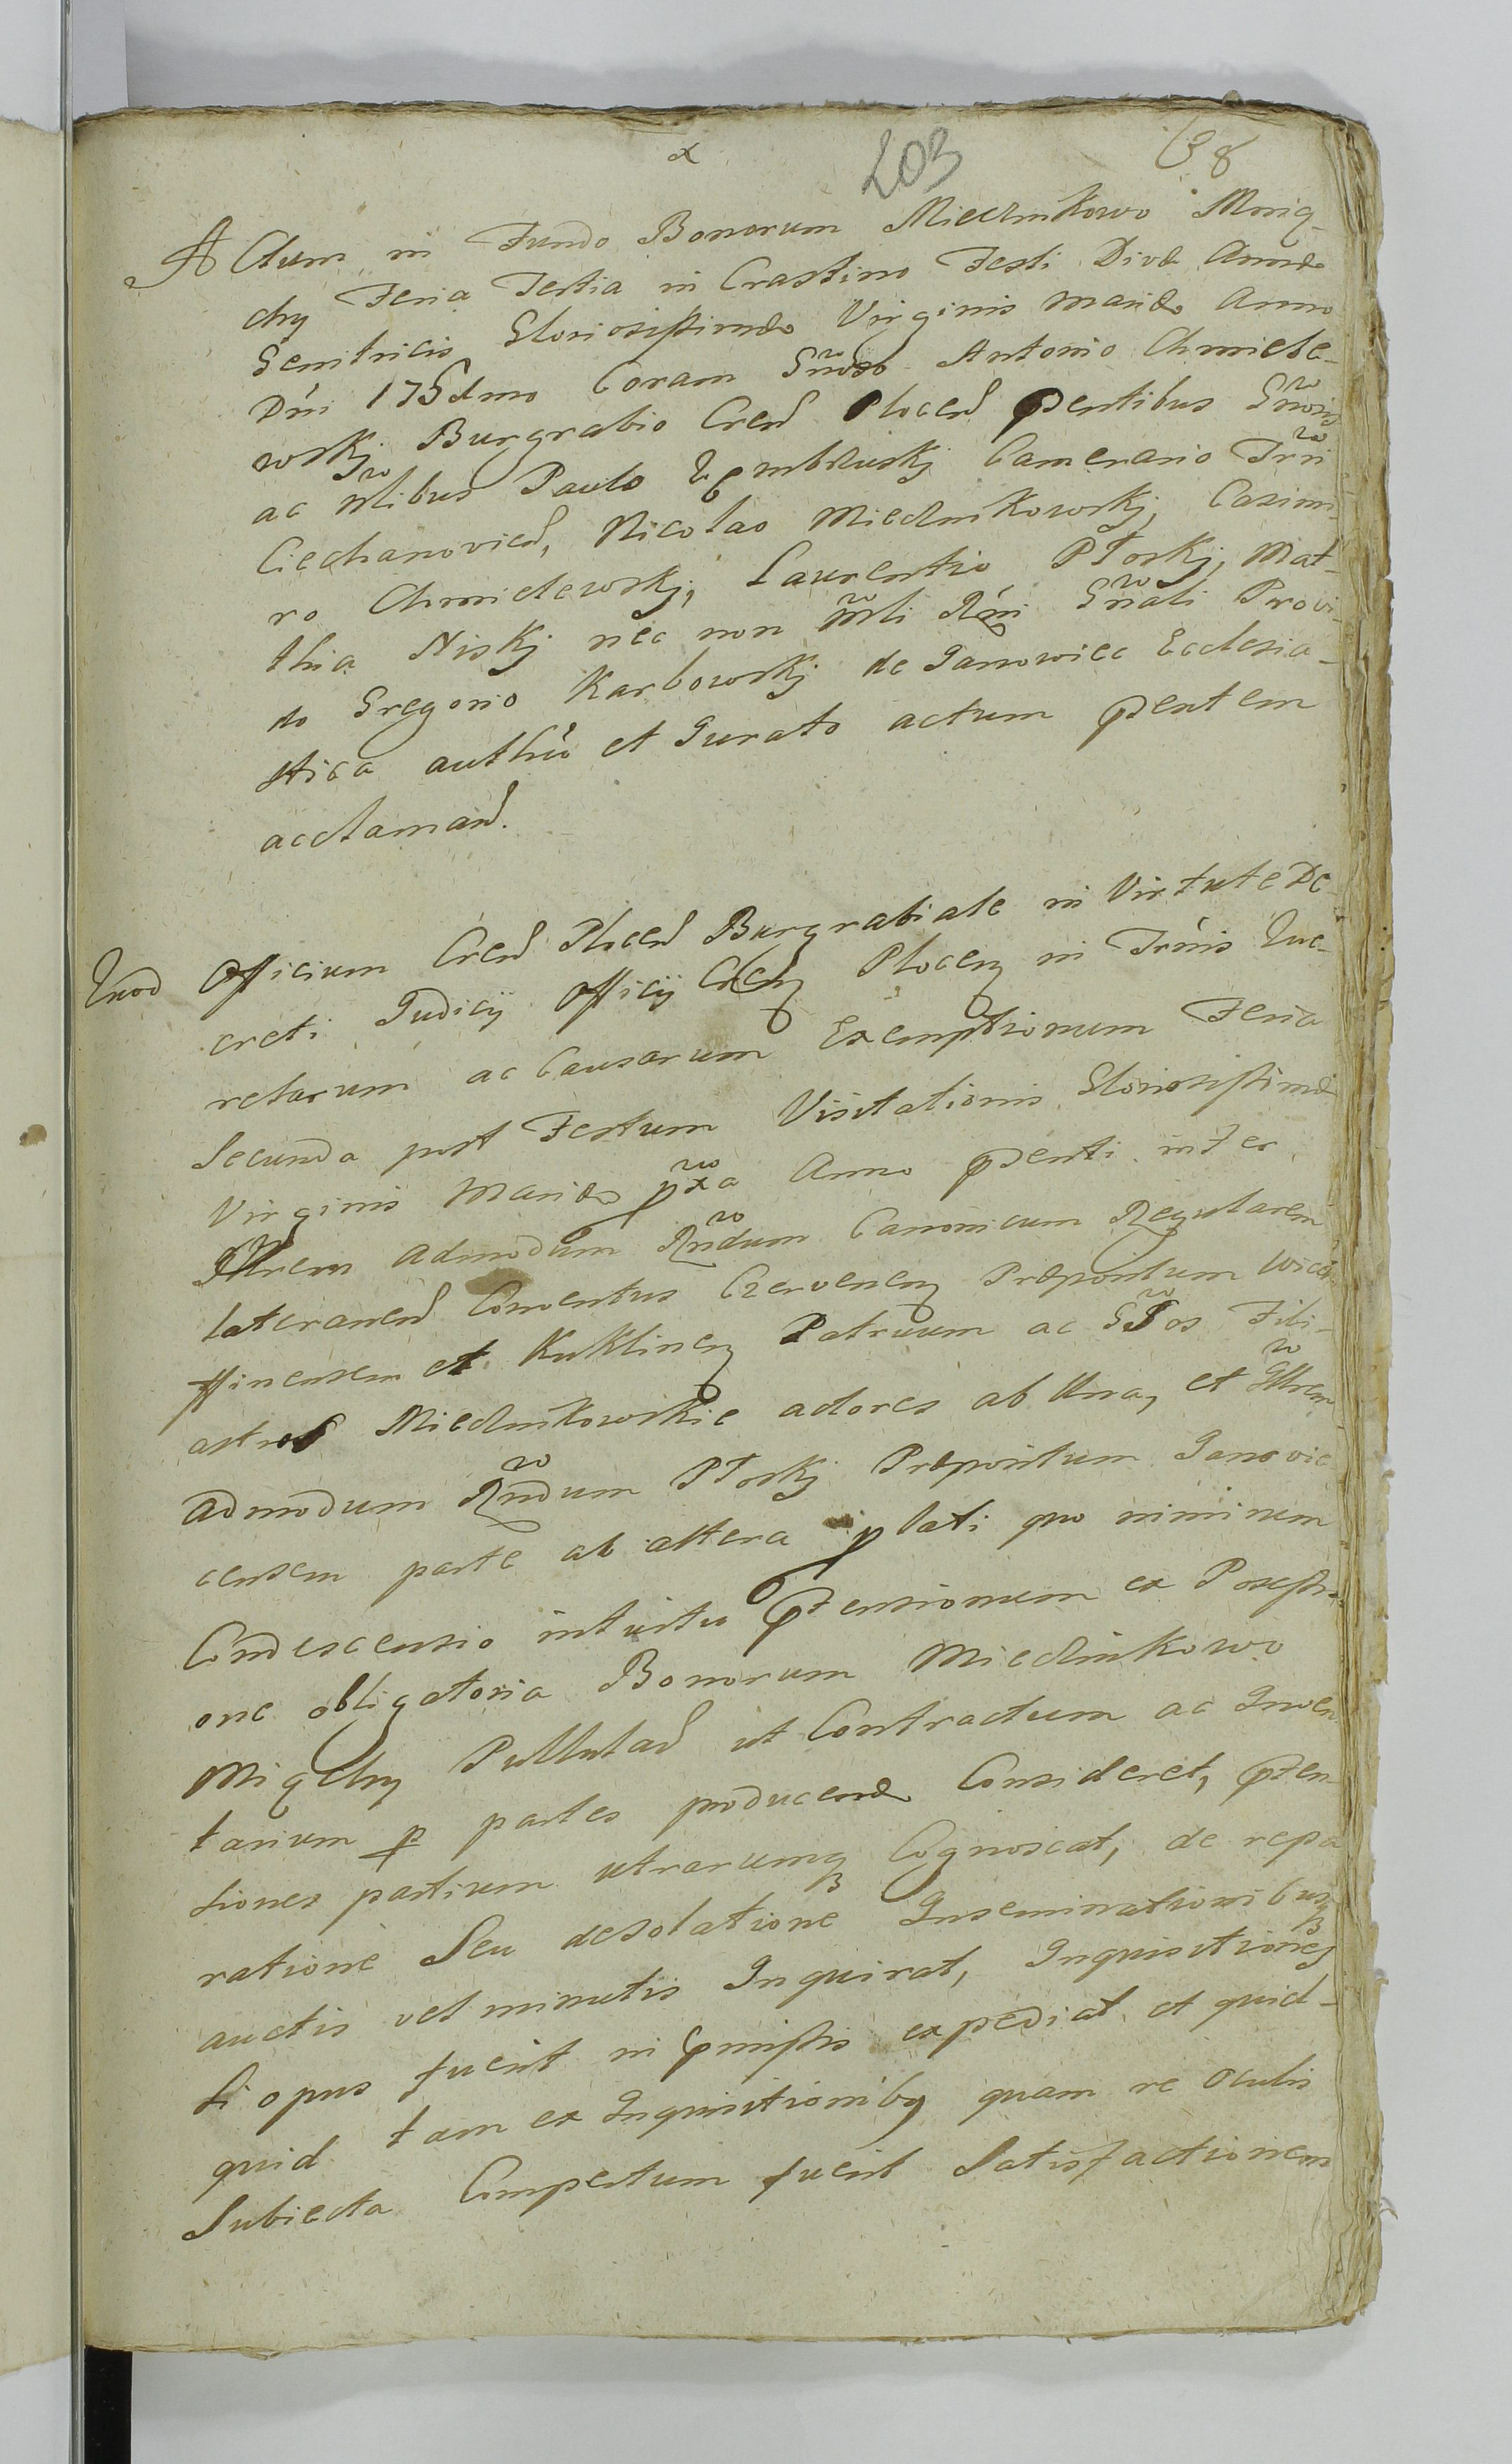 x 203 38
Actum in Fundo Bonorum Miecznikowo Miąq-
chy Feria Tertia in Crastino Festi Divæ Annæ
Genitricis Gloriosissimæ Virginis Mariæ Anno
Dńi 175 dmo Coram Gńroso Antonio Chmiele-
wskj Burgrabio Creń Ploceń pentibus Gńrosis
ac Nlibus Paulo Camerario Trrii
Ciechanovień, Nicolao Miecznikowskj, Casimi-
ro Chmielewskj, Laurentio PToskj, Mat-
thia Niskj nec non Mli Rńi Gńrali Provi-
do Gregorio Karbowskj de Janowiec Ecclesia-
stica authco et Jurato actum pentem
acclamań.
Quod Officium Creń Ploceń Burgrabiale in Virtute De-
creti Judicij Officij Creń Ploceń in Trńis Que-
relarum ac Causarum Exemptionum Feria
Secunda post Festum Visitationis Gloriosissimæ
Virginis Mariæ pxa Anno penti inter
Illrem admodum Rńdum Canonicum Regularem
lateraneń Conventus Czerveneń Præpositum
ffinensem et Kuklineń Patruum ac GGos Fili-
astros Miecznikowskie actores ab Una, et Illrem
admodum Rńdum PToskj Præpositum Janovie
censem parte ab altera plati quo nimirum
Condescensio intuitu ptensionum ex Possessi-
one obligatoria Bonorum Miecznikowo
Miąchy Pullulań ut Contractum ac Inven
tarium p partes producenda Consideret, pten
tiones partium utrarumq Cognoscat, de repa
ratione Seu desolatione Inseminationibusq
auctis vel minutis Inquirat, Inquisitiones
Si opus fuerit in pmissis expediat et quid-
quid tam ex Inquisitionibq quam re oculis
Subiecta Compertum fuerit Satisfactionem